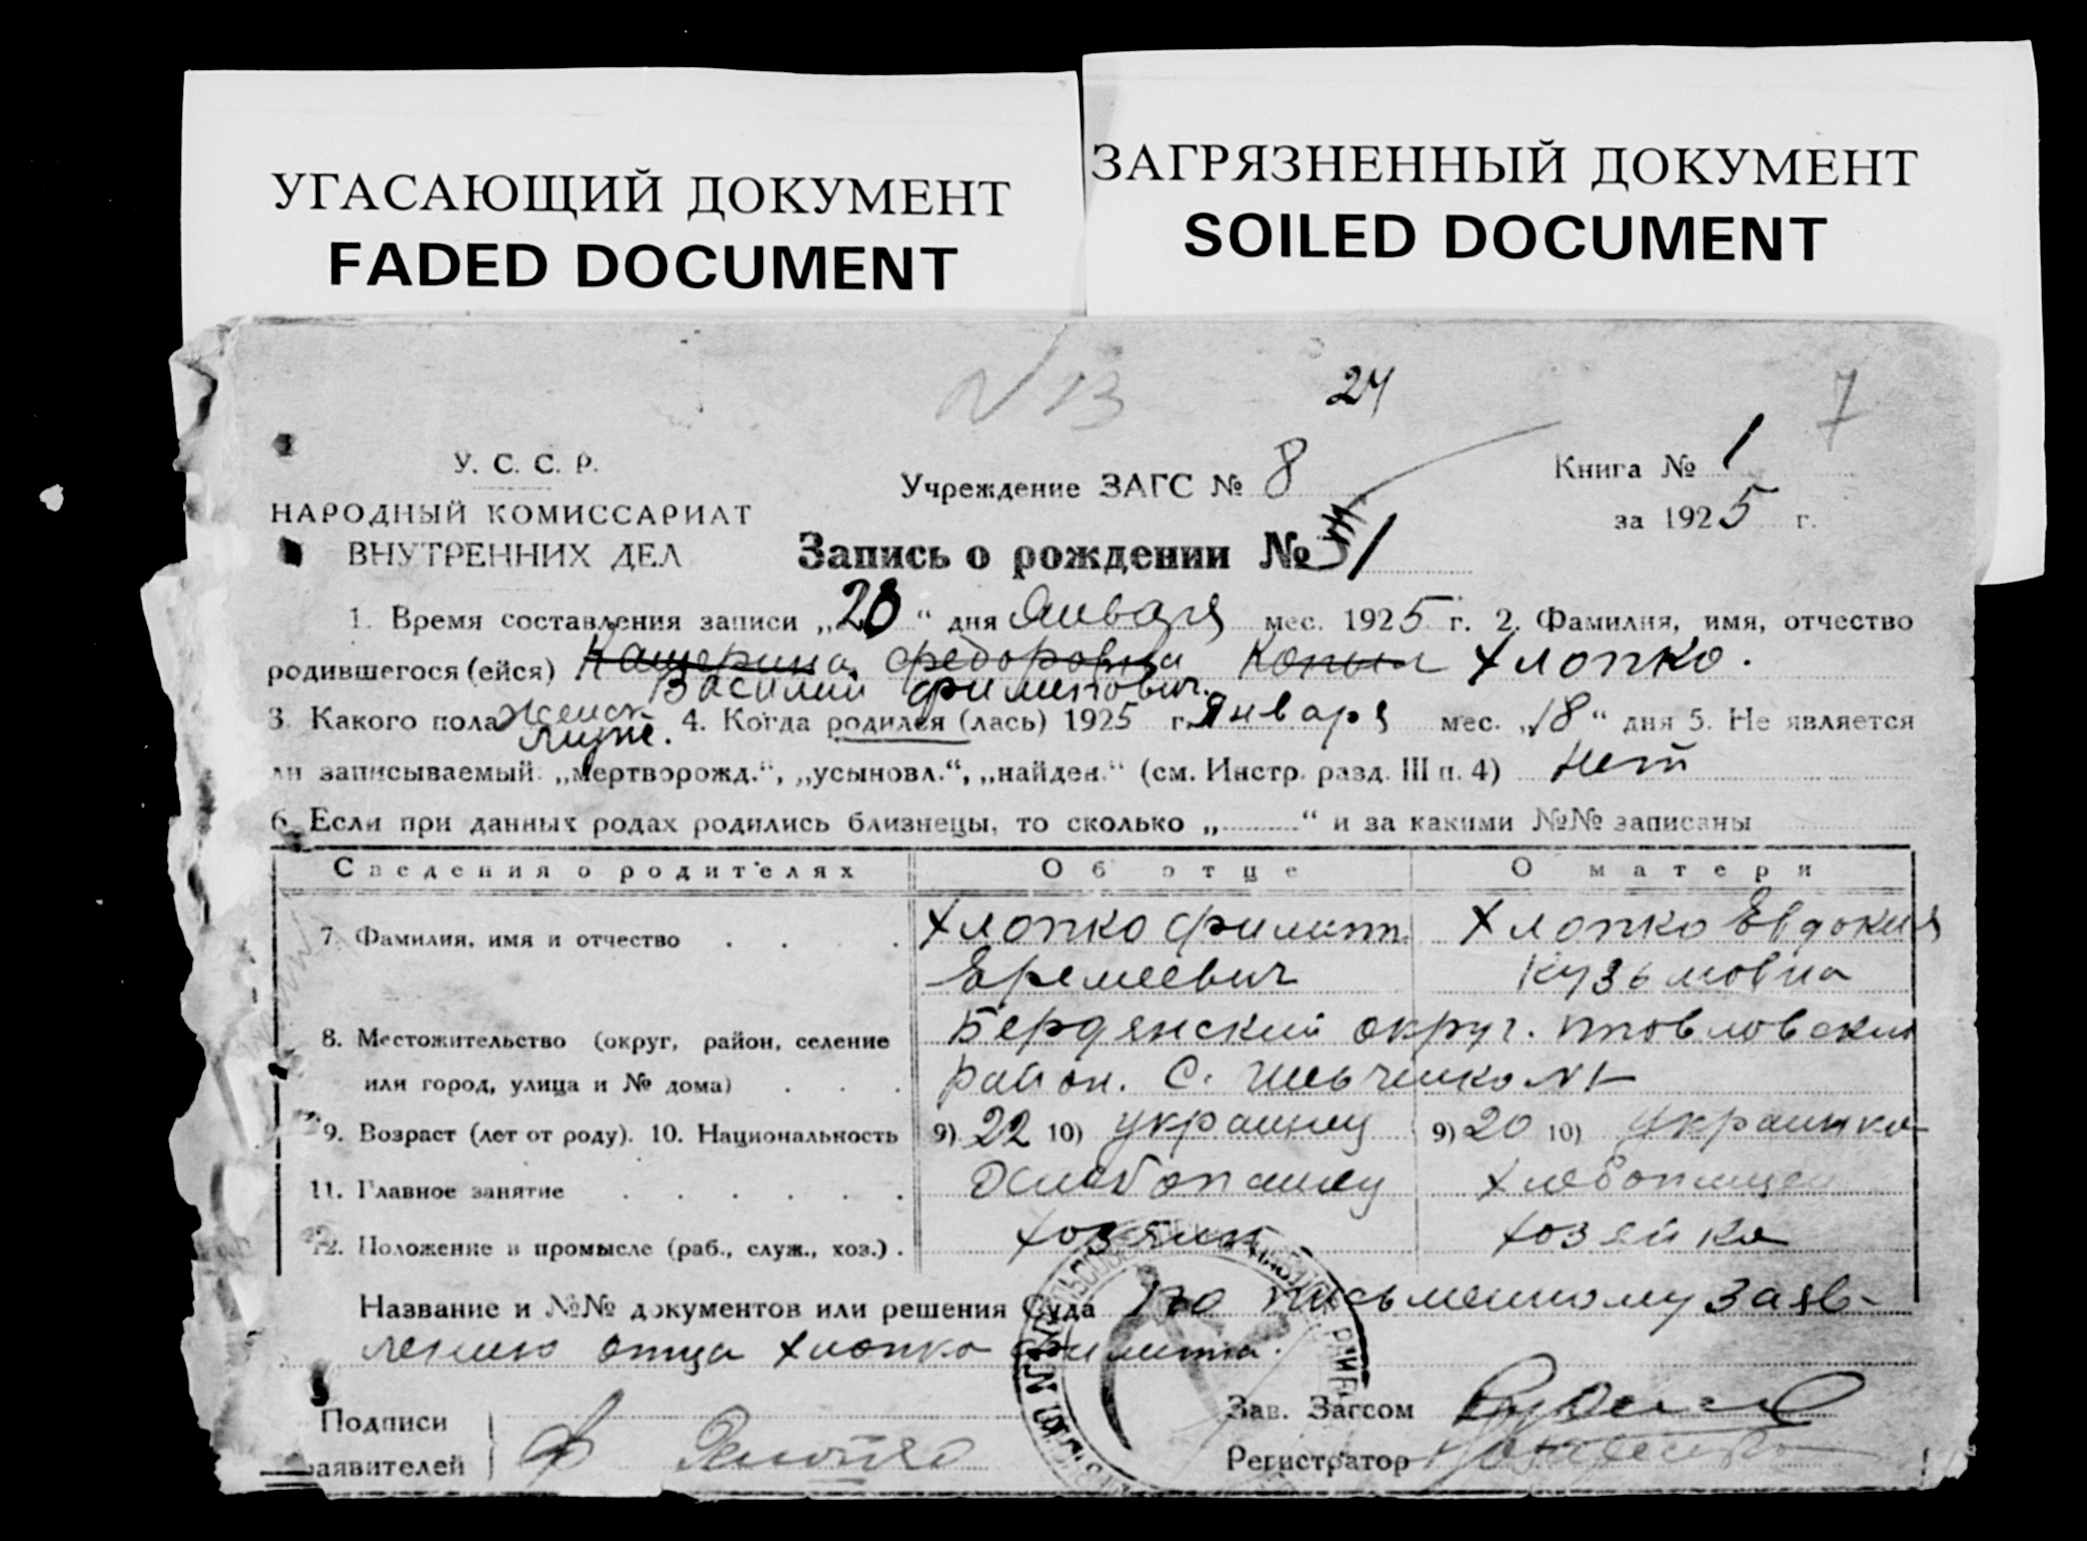 УГАСАЮЩИЙ ДОКУМЕНТ
FADED DOCUMENT
ЗАГРЯЗНЕННЫЙ ДОКУМЕНТ
SOILED DOCUMENT
N 13
24
7
У. С. С. Р.
НАРОДНЫЙ КОМИССАРИАТ
ВНУТРЕННИХ ДЕЛ
Учреждение ЗАГС № 8
Книга № 1
за 1925 г.
Запись о рождении №
1. Время составления записи „28“ дня Января мес. 1925 г. 2. Фамилия, имя, отчество
родившегося (ейся) Катерина Федоровна Копыл Хлопко.
Василий Филипович.
3. Какого пола женск 4. Когда родился (лась) 1925 г. Января мес. „18“ дня 5. Не является
муж.
ли записываемый: „мертворожд.“, „усыновл.“, „найден.“ (см. Инстр. разд. III п. 4) Нет
6. Если при данных родах родились близнецы, то сколько „..........“ и за какими №№ записаны
Сведения о родителях Об отце О матери
7. Фамилия, имя и отчество . . . . Хлопко Филипп Хлопко Евдокия
Еремеевич Кузьмовна
8. Местожительство (округ, район, селение Бердянский округ.
или город, улица и № дома) . . . район. С.
9. Возраст (лет от роду). 10. Национальность 9) 22 10) украинец 9) 20 10) Украинка
11. Главное занятие . . . . . . Хлебопашец
12. Положение в промысле (раб., служ., хоз.) . хозяин хозяйка
Название и №№ документов или решения Суда По письменному заяв-
лению отца Хлопко Филиппа.
Подписи
заявителей Ф
Зав. Загсом
Регистратор